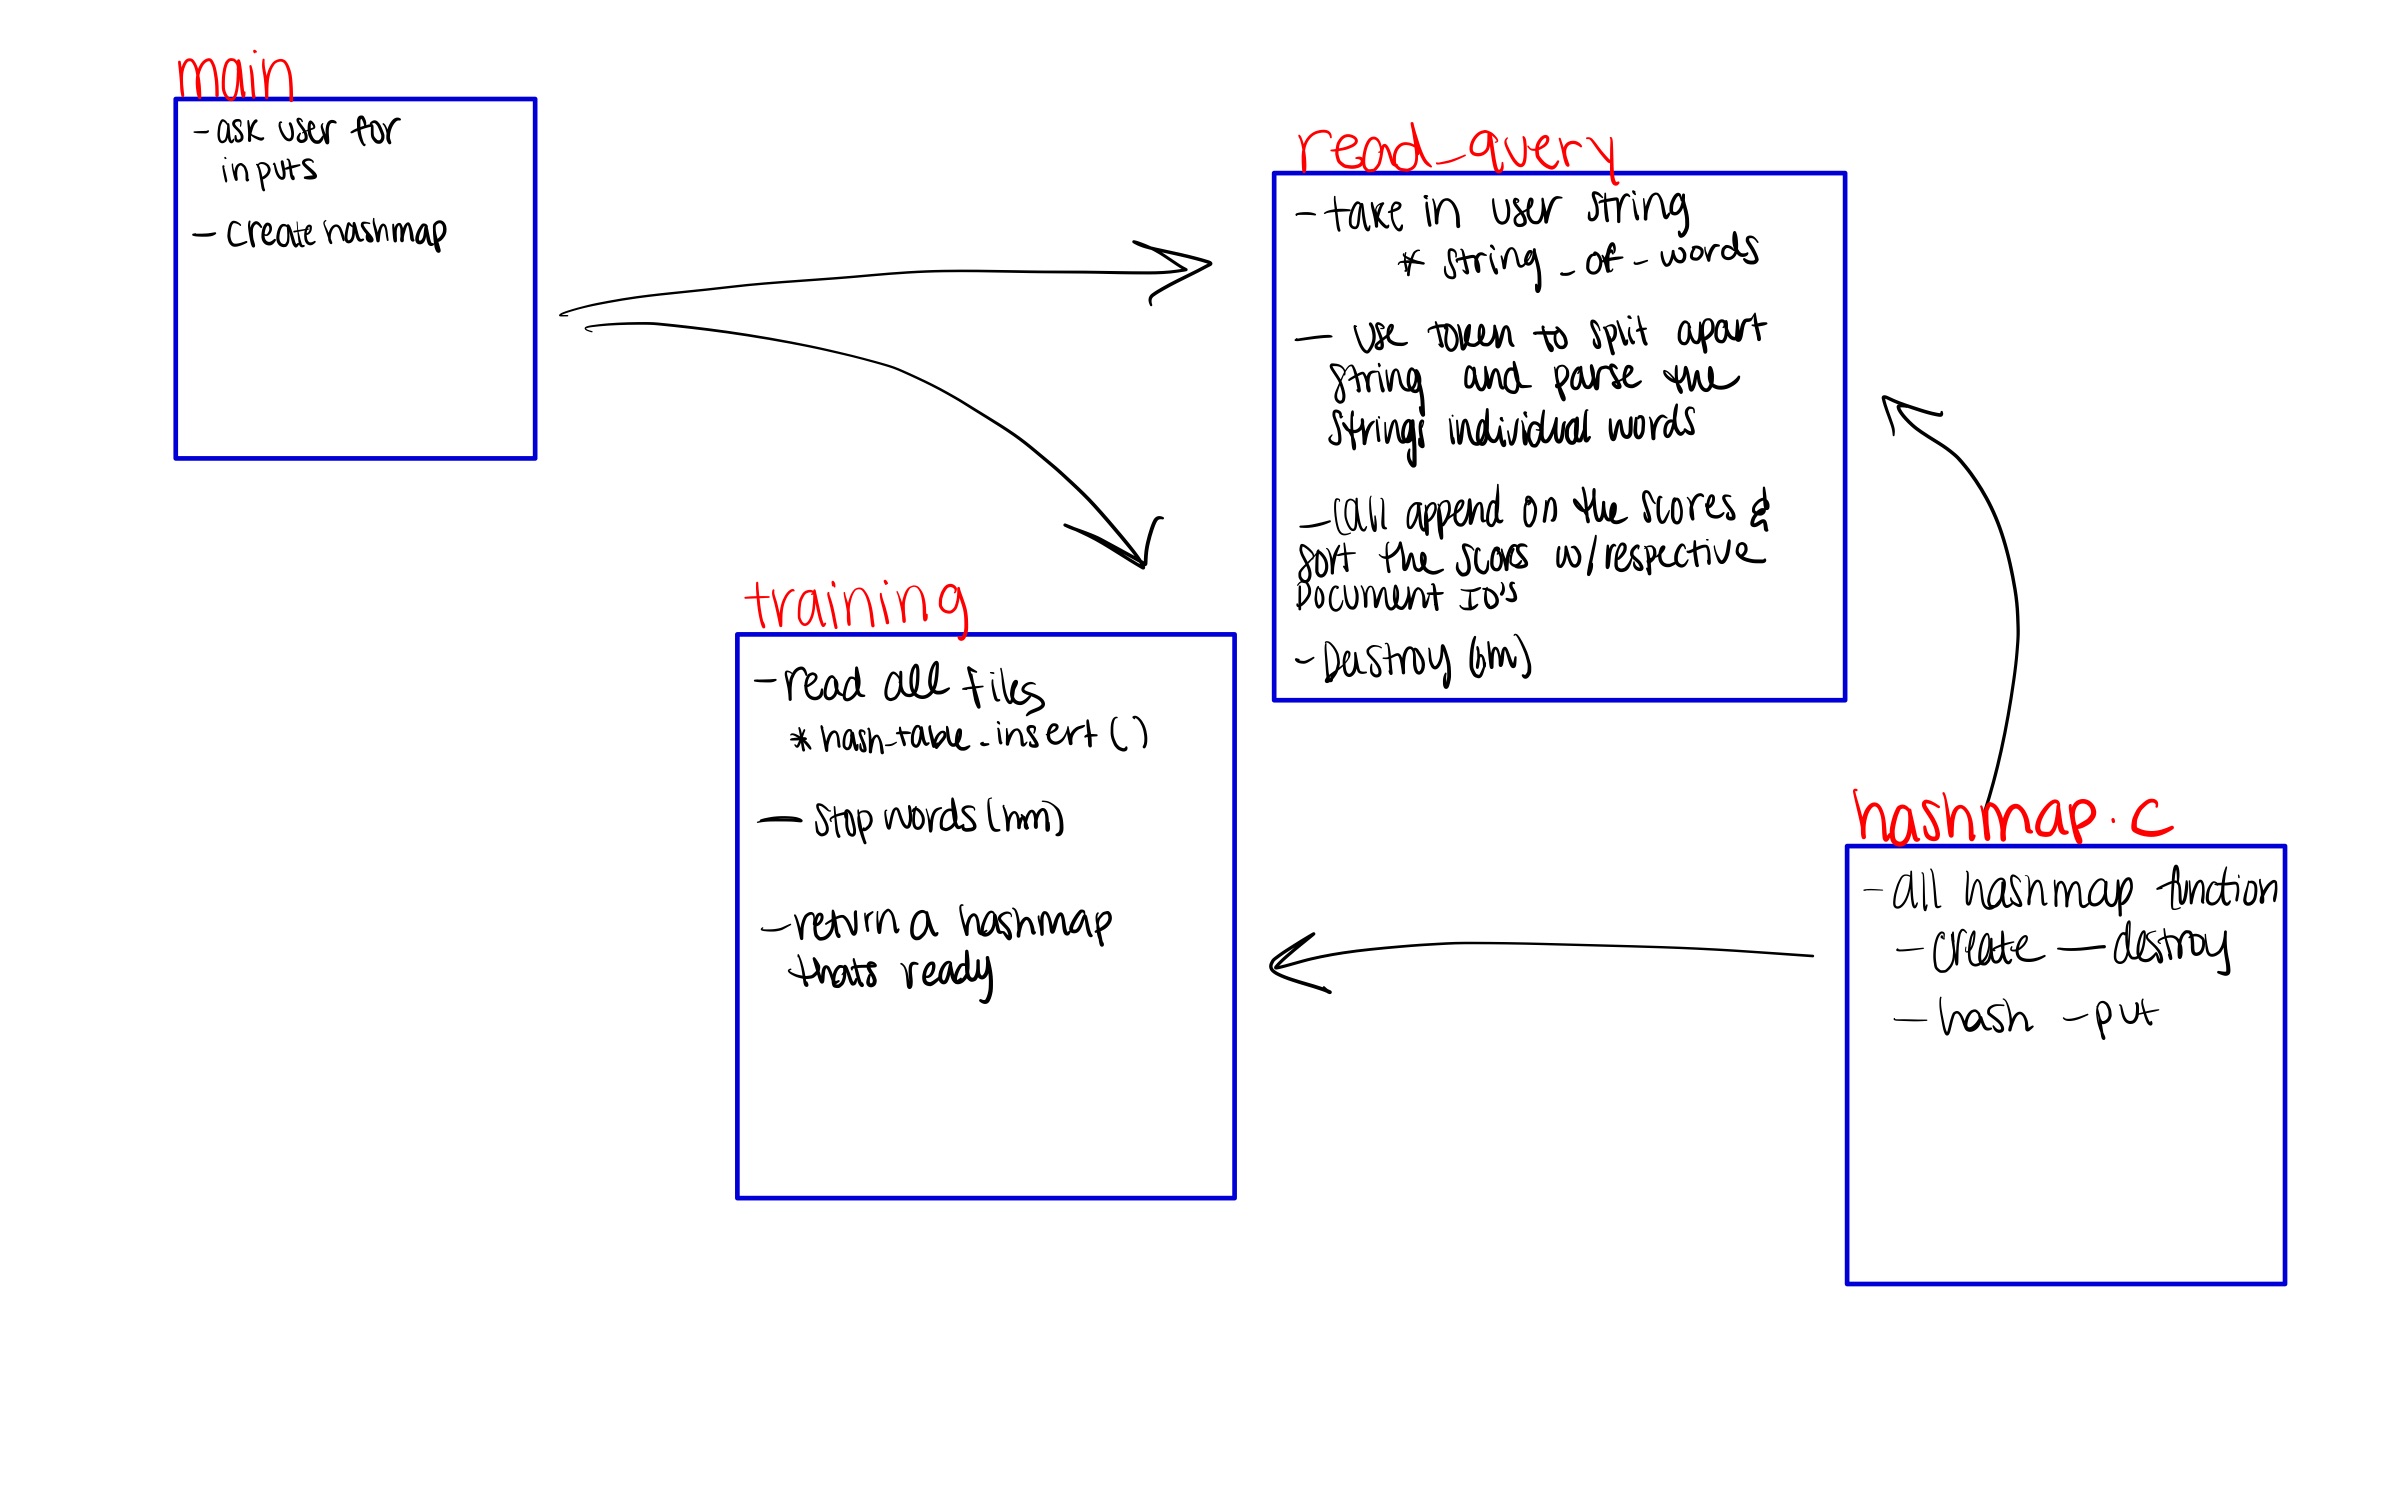 main
- ask user for
inputs
- create hashmap
read_query
- take in user string
* string_of_words
- use token to split apart
string and parse the
strings individual words
- call append on the scores &
sort the scores w/respective
Document ID's
- Destroy (hm)
training
- read all files
* hash_table_insert()
- stop words (hm)
- return a hashmap
thats ready
hashmap.c
- all hashmap function
- create - destroy
- hash - put